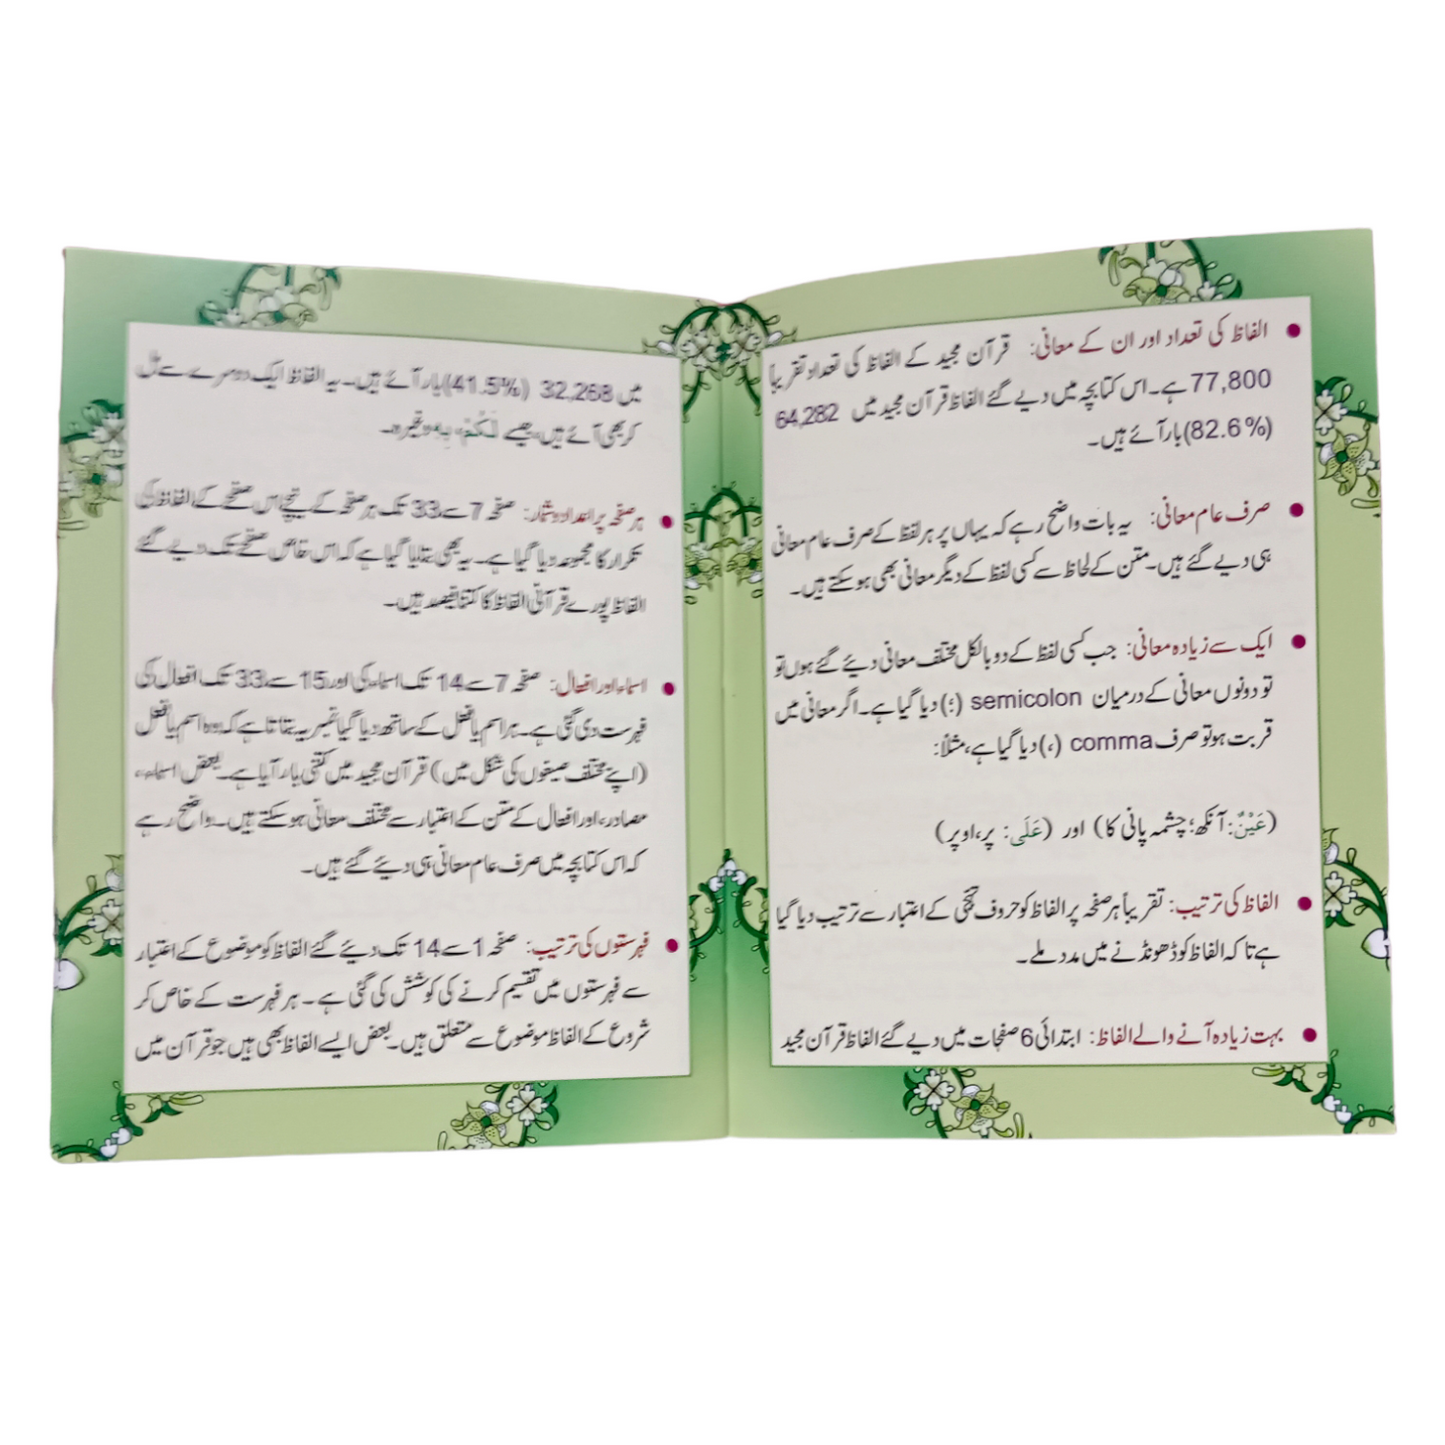 الفاظ کی تعداد اور ان کے معانی: قرآن مجید کے الفاظ کی تعداد تقریباً
77,800 ہے۔ اس کتابچہ میں دیے گئے الفاظ قرآن مجید میں 64,282
(82.6%) بار آئے ہیں۔
صرف عام معانی: یہ بات واضح رہے کہ یہاں پر ہر لفظ کے صرف عام معانی
ہی دیے گئے ہیں۔ متن کے لحاظ سے کسی لفظ کے دیگر معانی بھی ہو سکتے ہیں۔
ایک سے زیادہ معانی: جب کسی لفظ کے دو بالکل مختلف معانی دیئے گئے ہوں تو
تو دونوں معانی کے درمیان semicolon (؛) دیا گیا ہے۔ اگر معانی میں
قربت ہو تو صرف comma (،) دیا گیا ہے، مثلاً:
(عَيْنٌ: آنکھ؛ چشمہ پانی کا) اور (عَلَى: پر، اوپر)
الفاظ کی ترتیب: تقریباً ہر صفحہ پر الفاظ کو حروف تہجی کے اعتبار سے ترتیب دیا گیا
ہے تاکہ الفاظ کو ڈھونڈنے میں مدد ملے۔
بہت زیادہ آنے والے الفاظ: ابتدائی 6 صفحات میں دیے گئے الفاظ قرآن مجید
میں 32,268 (41.5%) بار آئے ہیں۔ یہ الفاظ ایک دوسرے سے مل
کر بھی آئے ہیں، جیسے لَكُمْ، بِهٖ وغیرہ۔
ہر صفحہ پر اعداد و شمار: صفحہ 7 سے 33 تک ہر صفحہ کے نیچے اس صفحے کے الفاظ کی
تکرار کا مجموعہ دیا گیا ہے۔ یہ بھی بتلایا گیا ہے کہ اس خاص صفحے تک دیے گئے
الفاظ پورے قرآنی الفاظ کا کتنا فیصد ہیں۔
اسماء اور افعال: صفحہ 7 سے 14 تک اسماء کی اور 15 سے 33 تک افعال کی
فہرست دی گئی ہے۔ ہر اسم یا فعل کے ساتھ دیا گیا نمبر یہ بتاتا ہے کہ وہ اسم یا فعل
(اپنے مختلف صیغوں کی شکل میں) قرآن مجید میں کتنی بار آیا ہے۔ بعض اسماء،
مصادر، اور افعال کے متن کے اعتبار سے مختلف معانی ہو سکتے ہیں۔ واضح رہے
کہ اس کتابچہ میں صرف عام معانی ہی دیئے گئے ہیں۔
فہرستوں کی ترتیب: صفحہ 1 سے 14 تک دیئے گئے الفاظ کو موضوع کے اعتبار
سے فہرستوں میں تقسیم کرنے کی کوشش کی گئی ہے۔ ہر فہرست کے خاص کر
شروع کے الفاظ موضوع سے متعلق ہیں۔ بعض ایسے الفاظ بھی ہیں جو قرآن میں